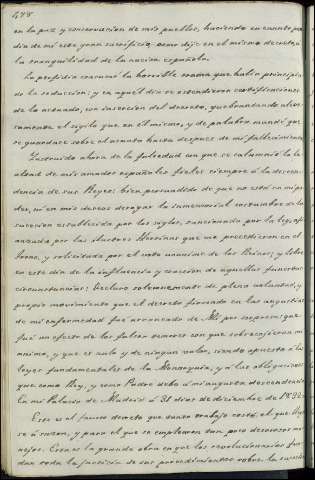 478
en la paz y conservacion de mis pueblos, haciendo en cuanto pen-
dia de mi este gran sacrificio, como dije en el mismo decreto, a
la tranquilidad de la nacion española.
La perfidia consumó la horrible trama que habia principia-
do la seduccion; y en aquel dia se estendieron certificaciones
de lo actuado, con insercion del decreto, quebrantando alevo-
samente el sigilo que en el mismo, y de palabra mandé que
se guardase sobre el asunto hasta despues de mi fallecimiento.
Instruido ahora de la falsedad con que se calumnió la le-
altad de mis amados españoles, fieles siempre á la descen-
dencia de sus Reyes; bien persuadido de que no está en mi po-
der, ni en mis deseos derogar la inmemorial costumbre de la
sucesion establecida por los siglos, sancionada por la ley, af-
ianzada por las ilustres Heroinas que me precedieron en el
trono, y solicitada por el voto unanime de los Reinos; y libre
en este dia de la influencia y coaccion de aquellas funestas
circunstancias: Declaro solemnemente de plena voluntad y
propio movimiento que el decreto firmado en las angustias
de mi enfermedad fue arrancado de Mi por sorpresa; que
fué un efecto de los falsos temores con que sobrecogieron mi
animo, y que es nulo y de ningun valor, siendo opuesto á las
leyes fundamentales de la Monarquía, y á las obligaciones
que como Rey, y como Padre debo á mi augusta descendencia.
En mi Palacio de Madrid á 31 dias de diciembre de 1832.
Este es el fausto decreto que tanto trabajo costó, el que
se á razon, y para el que se emplearon tan poco decorosos ma-
nejos. Esta es la grande obra en que los revolucionarios fun-
dan toda la justicia de sus procedimientos sobre la sucesion